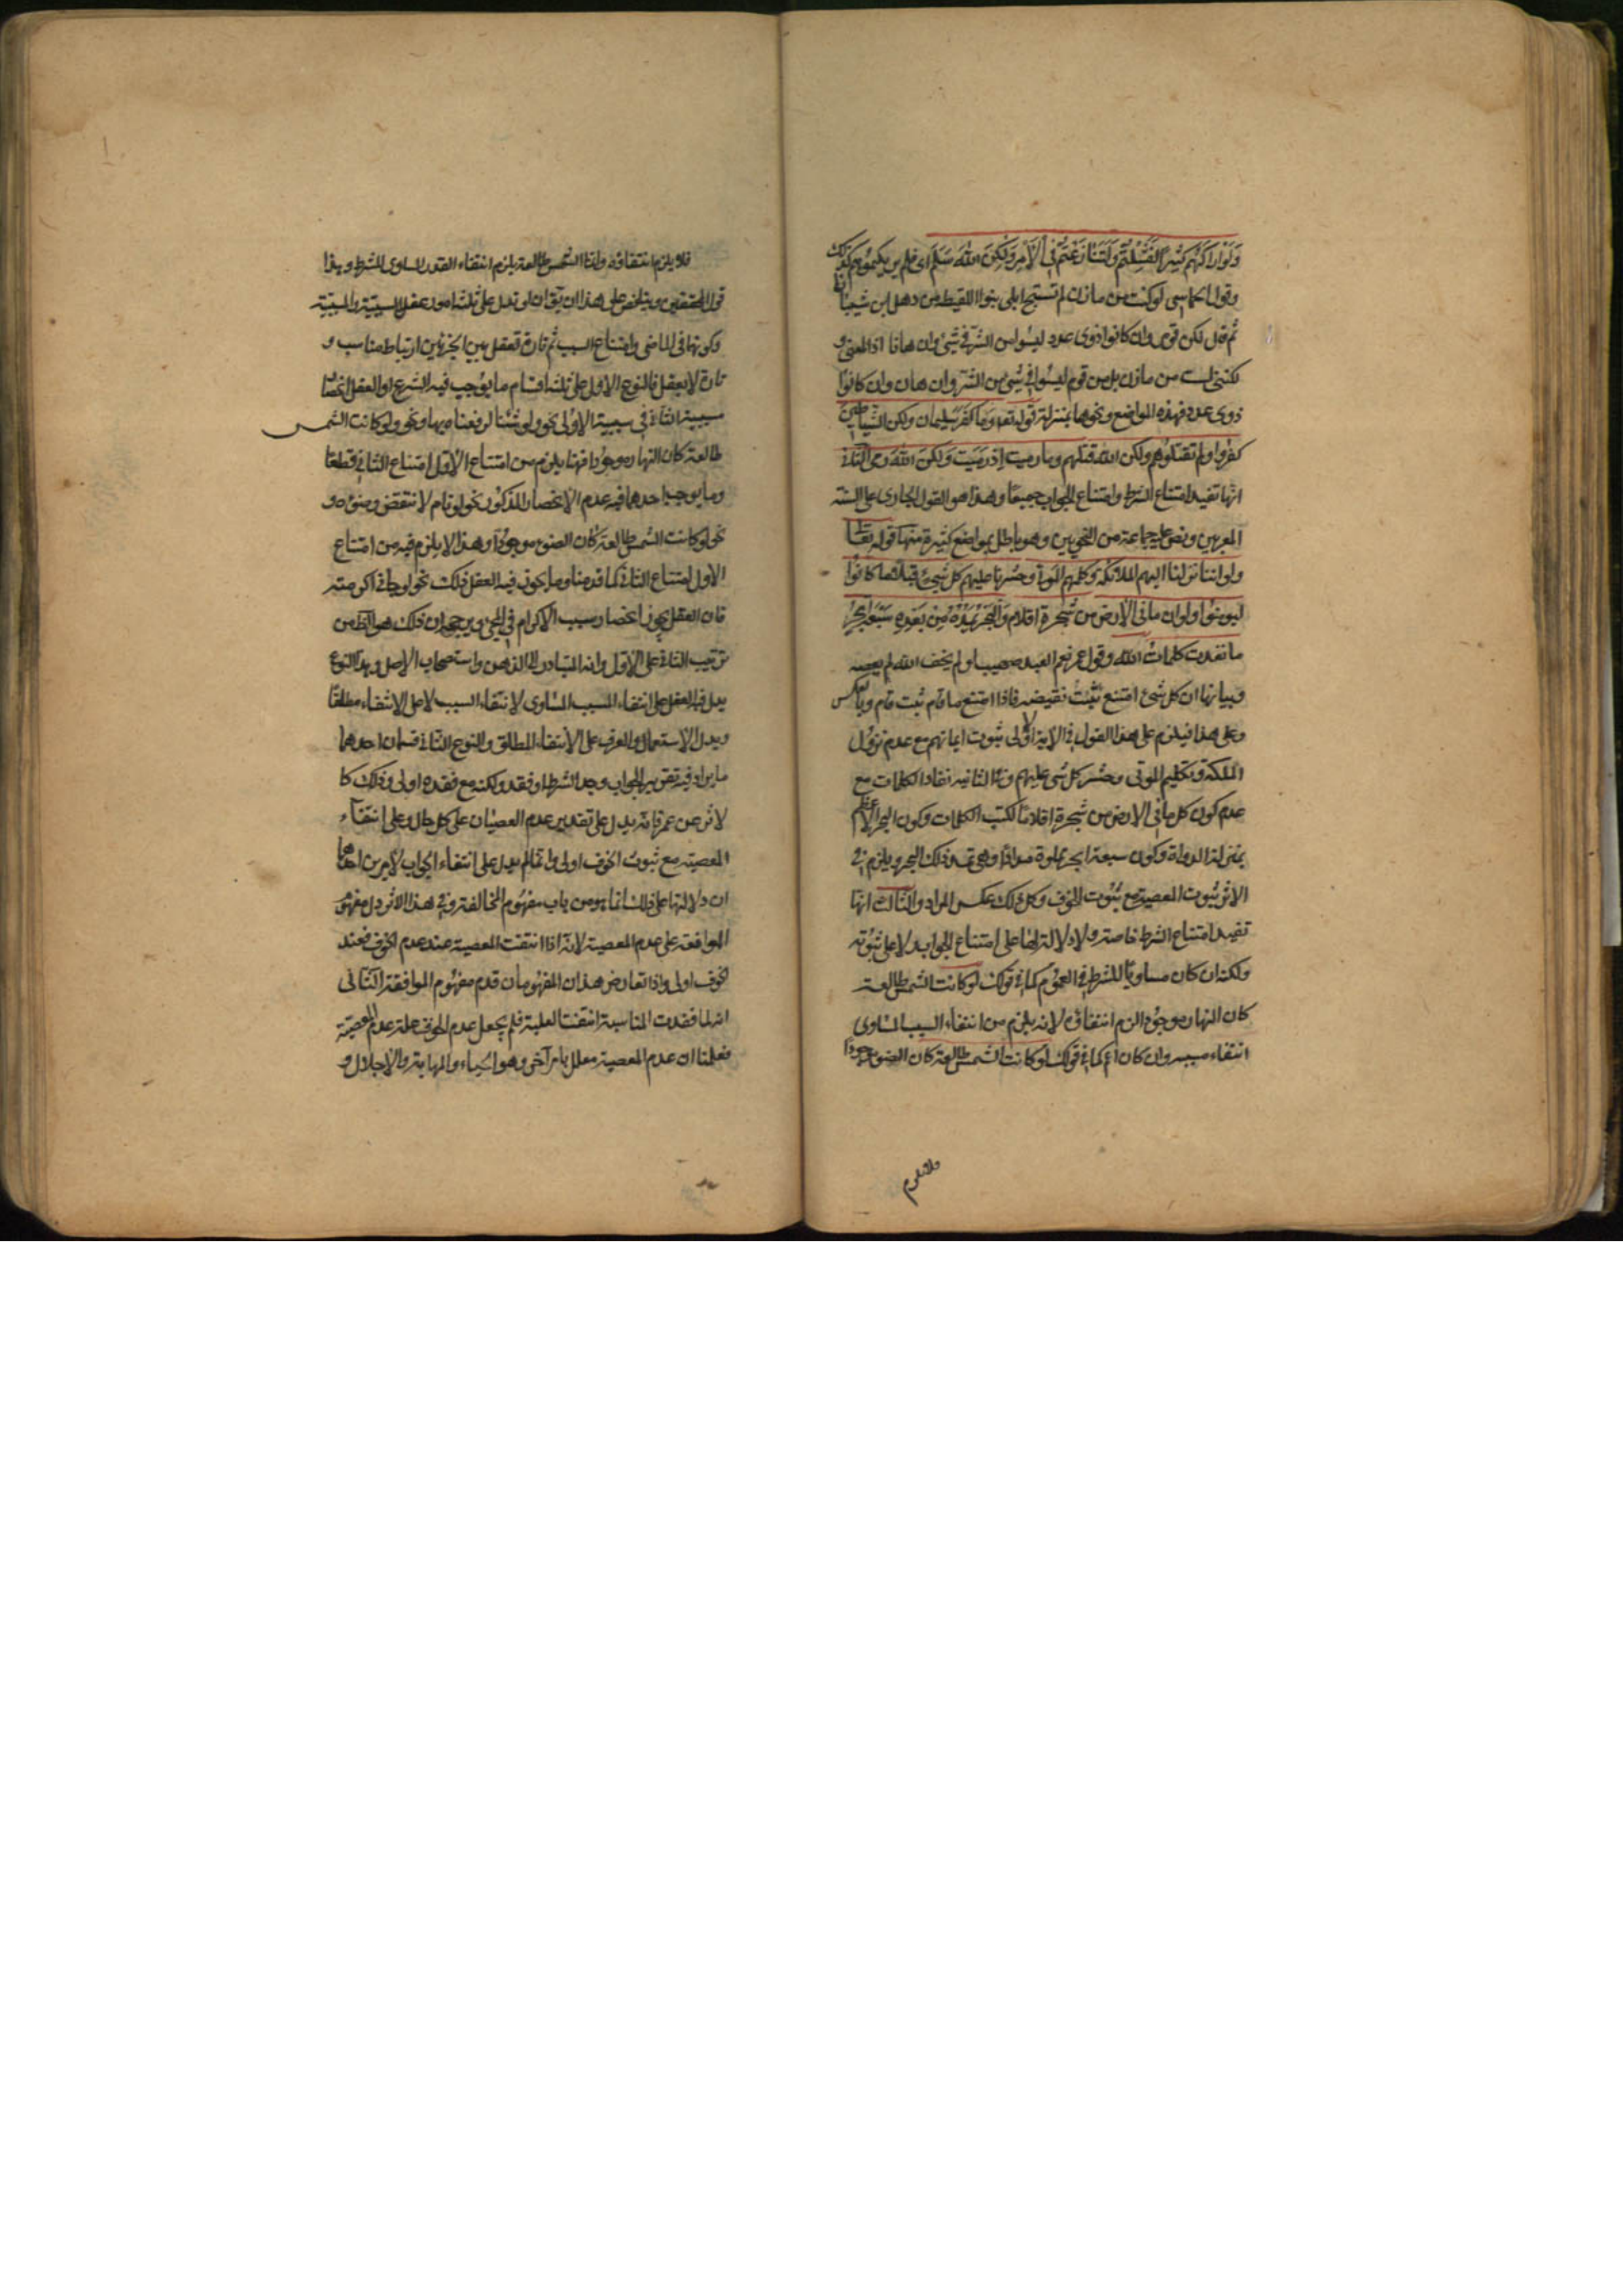 وَلَوْ اَرَاكَهُمْ كَثِيْرًا لَفَشِلْتُمْ وَلَتَنَازَعْتُمْ فِى الْاَمْرِ وَلٰكِنَّ اللهَ سَلَّمَ اى فلم يريكموهم كذلك
وقول الحماسى لو كنت من مازن لم تستبح ابلى بنوا اللقيطة من ذهل ابن شيبانا
ثم قال لكن قومى وان كانوا ذوى عدد ليسوا من الشر فى شئ وان هانا اذ المعنى و
لكننى لست من مازن بل من قوم ليسوا فى شئ من الشر وان هان وان كانوا
ذوى عدد فهذه المواضع ونحوها بمنزلة قوله تعه وَمَا كَفَرَ سليمان ولكن الشياطين
كفروا ولم تقتلوهم ولكن الله قتلهم وما رميت اذ رميت ولكن الله رمى الثانى
انها تفيد امتناع الشرط وامتناع الجواب جميعا وهذا هو القول الجارى على السنة
المعربين ونص عليه جماعة من النحويين وهو باطل بمواضع كثيرة منها قوله تعا
ولو اننا نزلنا اليهم الملائكة وكلمهم الموتى وحشرنا عليهم كل شئ قبلا ما كانوا
ليؤمنوا ولو ان ما فى الارض من شجرة اقلام والبحر يمده من بعده سبعة ابحر
ما نفدت كلمات الله وقول عمر نعم العبد صهيب لو لم يخف الله لم يعصه
وبيانها ان كل شئ امتنع ثبت نقيضه فاذا امتنع ما قام ثبت قام وبالعكس
وعلى هذا فيلزم على هذا القول فى الاية الاولى ثبوت ايمانهم مع عدم نزول
الملئكة وتكليم الموتى وحشر كل شى عليهم وفى الثانيه نفاد الكلمات مع
عدم كون كل ما فى الارض من شجرة اقلاما لكتب الكلمات وكون البحر الاعظم
بمنزلة الدواة وكون سبعة ابحر مملوة مدادا وهى تمد ذلك البحر ويلزم فى
الاثر ثبوت المعصية مع ثبوت الخوف وكل ذلك عكس المراد والثالث انها
تفيد امتناع الشرط خاصة ولا دلالة لها على امتناع الجواب ولا على ثبوته
ولكنه ان كان مساويا للشرط فى العموم كما فى قولك لو كانت الشمس طالعة
كان النهار موجودا لزم انتفاؤه لانه يلزم من انتفاء السبب المساوى
انتفاء مسببه وان كان اعم كما فى قولك لو كانت الشمس طالعة كان الضوء موجودا
فلا يلزم
فلا يلزم انتفاؤه وانما يلزم انتفاء القدر المساوى للشرط وهذا
قول المحققين ويتلخص على هذا ان يقال ان لو تدل على ثلثة امور عقد السببية والمسببية
وكونهما فى الماضى وامتناع السبب ثم تارة تعقل بين الجزئين ارتباط مناسب و
تارة لا يعقل فالنوع الاول على ثلثة اقسام ما يوجب فيه الشرع او العقل انحصار
سببية الثانى فى سببية الاولى نحو ولو شئنا لرفعناه بها ونحو ولو كانت الشمس
طالعة كان النهار موجودا فهذا يلزم من امتناع الاول امتناع الثانى قطعا
وما يوجب احدهما فيه عدم الانحصار المذكور نحو لو نام لانتقض وضوءه و
نحو لو كانت الشمس طالعة كان الضوء موجودا وهذا لا يلزم فيه من امتناع
الاول امتناع الثانى كما قدمنا وما يجوز فيه العقل ذلك نحو لو جائنى اكرمته
فان العقل يجوز انحصار سبب الاكرام فى المجئ ويرجحه ان ذلك هو الظ من
ترتيب الثانى على الاول وانه المتبادر الى الذهن واستصحاب الاصل وهذا النوع
يدل فيه العقل على انتفاء المسبب المساوى لانتفاء السبب لا على الانتفاء مطلقا
ويدل الاستعمال والعرف على الانتفاء المطلق والنوع الثانى قسمان احدهما
ما يراد فيه تقرير الجواب وجد الشرط او فقد ولكنه مع فقده اولى وذلك كا
لاثر عن عمر فانه يدل على تقدير عدم العصيان على كل حال وعلى انتفاء
المعصية مع ثبوت الخوف اولى وانما لم يدل على انتفاء الجواب لامرين احدهما
ان دلالتها على ذلك انما هو من باب مفهوم المخالفة وفى هذا الاثر دل مفهوم
الموافقة على عدم المعصية لانه اذا انتفت المعصية عند عدم الخوف فعند
الخوف اولى واذا تعارض هذان المفهومان قدم مفهوم الموافقة الثانى
انه لما فقدت المناسبة انتفت العلية فلم يجعل عدم الخوف علة عدم المعصية
فعلمنا ان عدم المعصية معلل بامر آخر وهو الحياء والمهابة والاجلال و